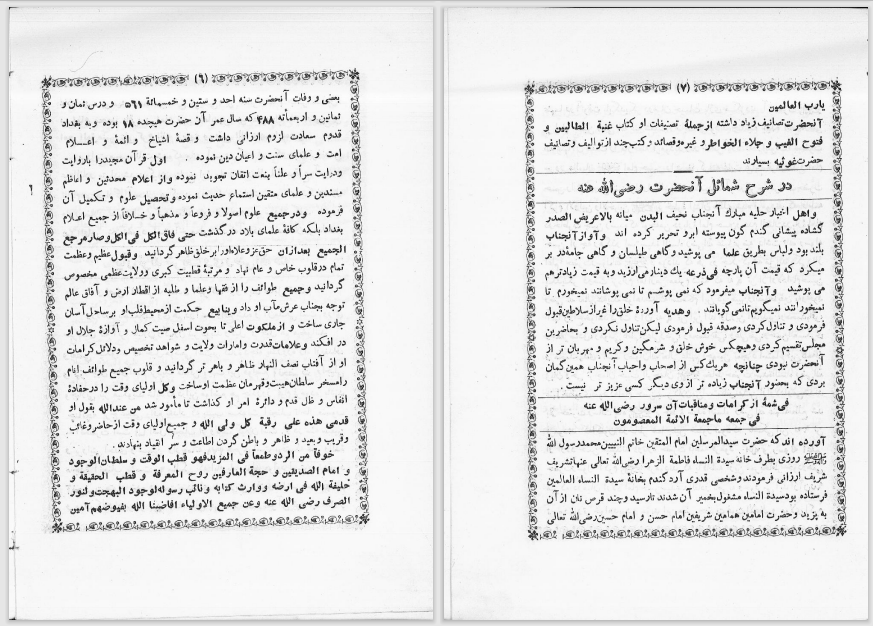 (٦)
بعضی و وفات آنحضرت سنه احد و ستین و خمسمائة ٥٦١ و درس ثمان و
ثمانین و اربعمأته ٤٨٨ که سال عمر آن حضرت هیچده ١٨ بوده و به بغداد
قدوم سعادت لزوم ارزانی داشت و قصهٔ اشیاخ و ائمهٔ و اعـــلام
امت و علمای سنت و اعیان دین نموده . اول قرآن مجید را باروایت
ودرایت سراً و علناً بنعت اتقان تجوید نموده و از اعلام محدثین و اعاظم
مسندین و علمای متقین استماع حدیث نموده وتحصیل علوم و تکمیل آن
فرموده ودرجمیع علوم اصولا و فروعاً و مذهباً و خلافاً از جمیع اعلام
بغداد بلکه کافهٔ علمای بلاد در گذشت حتی فاق الکل فی الکل وصار مرجع
الجمیع بعدازان حق عزوعلا اورا بر خلق ظاهر گردانید وقبول عظیم وعظمت
تمام در قلوب خاص و عام نهاد و مرتبهٔ قطبیت کبری وولایت عظمی مخصوص
گردانید و جمیع طوائف را از فقها وعلما و طلبه از اقطار ارض و آفاق عالم
توجه بجناب عرش مآب او داد و ینابیع حکمت از محیط قلب او بر ساحل آسان
جاری ساخت و از ملکوت اعلی تا بحوت اسفل صیت کمال و آوازهٔ جلال او
در افکند وعلامات قدرت وامارات ولایت و شواهد تخصیص و دلائل کرامات
او از آفتاب نصف النهار ظاهر و باهر تر گردانید و قلوب جمیع طوائف انام
رامسخر سلطان هیبت وقهرمان عظمت اوساخت وکل اولیای وقت را در
انفاس و ظل قدم و دائرهٔ امر او گذاشت تا مأمور شد من عندالله بقول او
قدمی هذه علی رقبة کل ولی الله و جمیع اولیای وقت از حاضر وغائب
وقریب و بعید و ظاهر و باطن گردن اطاعت و سر انقیاد بنهادند .
خوفاً من الرد وطمعاً فی المزید فهو قطب الوقت و سلطان الوجود
و امام الصدیقین و حجة العارفین روح المعرفة و قطب الحقیقة و
خلیفة الله فی ارضه ووارث کتابه ونائب رسوله لوجود البهجت ولنور
الصرف رضی الله عنه وعن جمیع الاولیاء افاضنا الله بفیوضهم آمین
(٧)
یارب العالمین
آنحضرت تصانیف زیاد داشته از جملهٔ تصنیفات او کتاب غنیة الطالبین و
فتوح الغیب و جلاء الخواطر و غیره و قصائد و کتب چند از توالیف و تصانیف
حضرت غوثیه بسیارند
در شرح شمائل آنحضرت رضی‌الله عنه
واهل اخبار حلیه مبارک آنجناب نحیف البدن میانه بالا عریض الصدر
گشاده پیشانی گندم گون پیوسته ابرو تحریر کرده اند وآواز آنجناب
بلند بود ولباس بطریق علما می پوشید وگاهی طیلسان و گاهی جامهٔ در بر
میکرد که قیمت آن پارچه فی ذرعه یک دینار می ارزید و به قیمت زیادترهم
می پوشید وآنجناب میفرمود که نمی پوشم تا نمی پوشانند نمیخورم تا
نمیخورانند نمیگویم تا نمی گویانند . وهدیه آوردهٔ خلق را غیر از سلاطین قبول
فرمودی و تناول کردی وصدقه قبول فرمودی لیکن تناول نکردی و بحاضرین
مجلس تقسیم کردی وهیچکس خوش خلق و شرمگین وکریم و مهربان تر از
آنحضرت نبودی چنانچه هر یک کس از اصحاب واحباب آنجناب همین گمان
بردی که بحضور آنجناب زیاده تر از وی دیگر کسی عزیز تر نیست .
فی شمهٔ از کرامات و مناقبات آن سرور رضی الله عنه
فی جمعه ماجمعة الائمة المعصومون
آورده اند که حضرت سیدالمرسلین امام المتقین خاتم النبیین محمد رسول الله
روزی بطرف خانه سیدة النساء فاطمة الزهرا رضی‌الله تعالی عنها تشریف
شریف ارزانی فرمودند وشخصی قدری آرد گندم بخانهٔ سیدة النساء العالمین
فرستاده بود سیدة النساء مشغول بخمیر آن شدند تارسید و چند قرص نان از آن
به پزید و حضرت امامین همامین شریفین امام حسن و امام حسین رضی الله تعالی